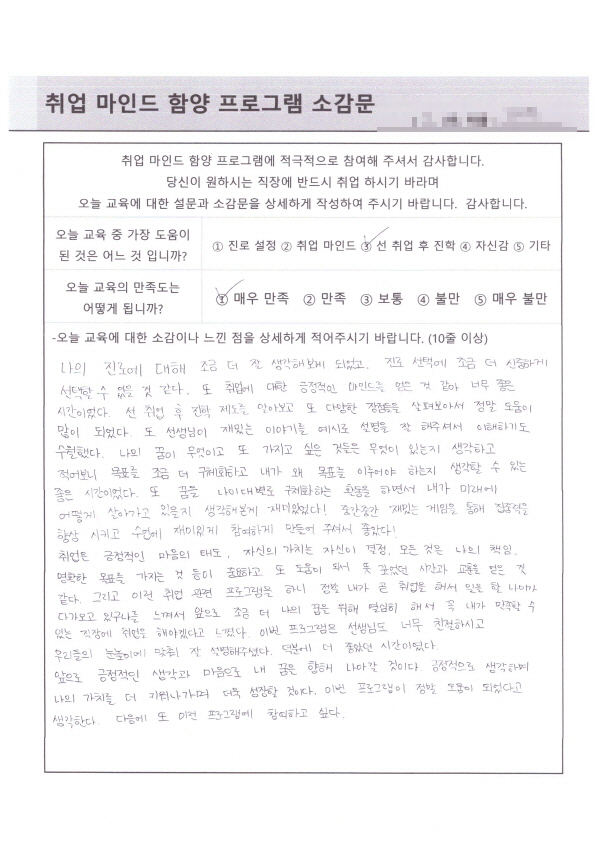 취업 마인드 함양 프로그램 소감문
취업 마인드 함양 프로그램에 적극적으로 참여해 주셔서 감사합니다.
당신이 원하시는 직장에 반드시 취업 하시기 바라며
오늘 교육에 대한 설문과 소감문을 상세하게 작성하여 주시기 바랍니다. 감사합니다.
오늘 교육 중 가장 도움이
된 것은 어느 것 입니까?
① 진로 설정 ② 취업 마인드 ③ 선 취업 후 진학 ④ 자신감 ⑤ 기타
오늘 교육의 만족도는
어떻게 됩니까?
① 매우 만족 ② 만족 ③ 보통 ④ 불만 ⑤ 매우 불만
-오늘 교육에 대한 소감이나 느낀 점을 상세하게 적어주시기 바랍니다. (10줄 이상)
나의 진로에 대해 조금 더 잘 생각해보게 되었고, 진로 선택에 조금 더 신중하게
선택할 수 있을 것 같다. 또 취업에 대한 긍정적인 마인드를 얻은 것 같아 너무 좋은
시간이었다. 선 취업 후 진학 제도를 알아보고 또 다양한 장점들을 살펴보아서 정말 도움이
많이 되었다. 또 선생님이 재밌는 이야기를 예시로 설명을 잘 해주셔서 이해하기도
수월했다. 나의 꿈이 무엇이고 또 가지고 싶은 것들은 무엇이 있는지 생각하고
적어보니 목표를 조금 더 구체화하고 내가 왜 목표를 이루어야 하는지 생각할 수 있는
좋은 시간이었다. 또 꿈을 나이대별로 구체화하는 활동을 하면서 내가 미래에
어떻게 살아가고 있을지 생각해본게 재미있었다! 중간중간 재밌는 게임을 통해 집중력을
향상 시키고 수업에 재미있게 참여하게 만들어 주셔서 좋았다!
취업은 긍정적인 마음의 태도, 자신의 가치는 자신이 결정, 모든 것은 나의 책임,
명확한 목표를 가지는 것 등이 중요하고 또 도움이 되서 뜻 깊었던 시간과 교훈을 얻은 것
같다. 그리고 이런 취업 관련 프로그램을 하니 정말 내가 곧 취업을 해서 일을 할 나이가
다가오고 있구나를 느껴서 앞으로 조금 더 나의 꿈을 위해 열심히 해서 꼭 내가 만족할 수
있는 직장에 취업을 해야겠다고 느꼈다. 이번 프로그램은 선생님도 너무 친절하시고
우리들의 눈높이에 맞춰 잘 설명해주셨다. 덕분에 더 좋았던 시간이었다.
앞으로 긍정적인 생각과 마음으로 내 꿈을 향해 나아갈 것이다. 긍정적으로 생각하며
나의 가치를 더 키워나가며 더욱 성장할 것이다. 이번 프로그램이 정말 도움이 되었다고
생각한다. 다음에 또 이런 프로그램에 참여하고 싶다.